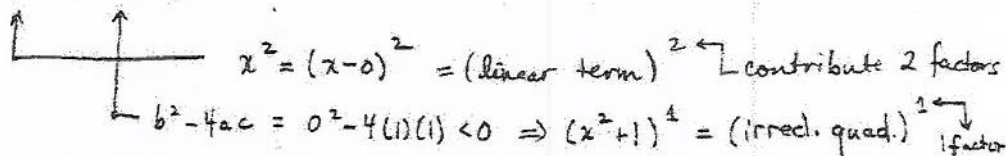 x² = (x-0)² = (linear term)² contribute 2 factors
b²-4ac = 0²-4(1)(1) < 0 ⇒ (x²+1)¹ = (irred. quad.)¹ 1 factor